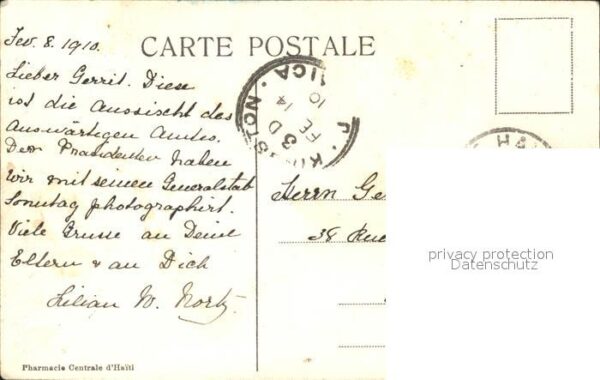 CARTE POSTALE
Fev. 8. 1910.
Lieber Gerrit. Diese
ist die Aussischt des
Auswärtigen Amtes.
Den Präsidenten haben
wir mit seinem Generalstab
Sonntag photographirt.
Viele Grusse an Deine
Eltern & an Dich
Lilian W.
KINGSTON
JAMAICA
3 D
FE 14
10
HA
Herrn Ge
38 Rue
privacy protection
Datenschutz
Pharmacie Centrale d'Haïti